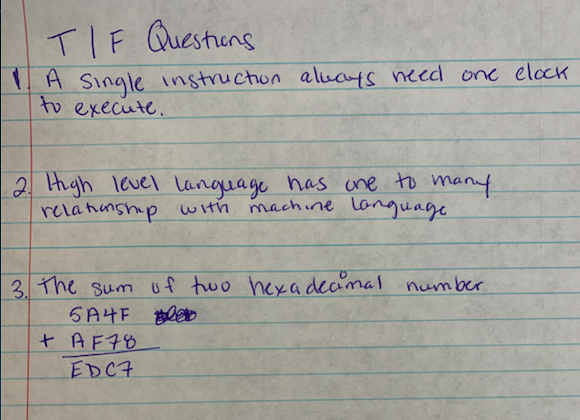 T | F Questions
1. A single instruction always need one clock
to execute.
2. High level language has one to many
relationship with machine language
3. The sum of two hexadecimal number
5A4F
+ AF78
EDC7